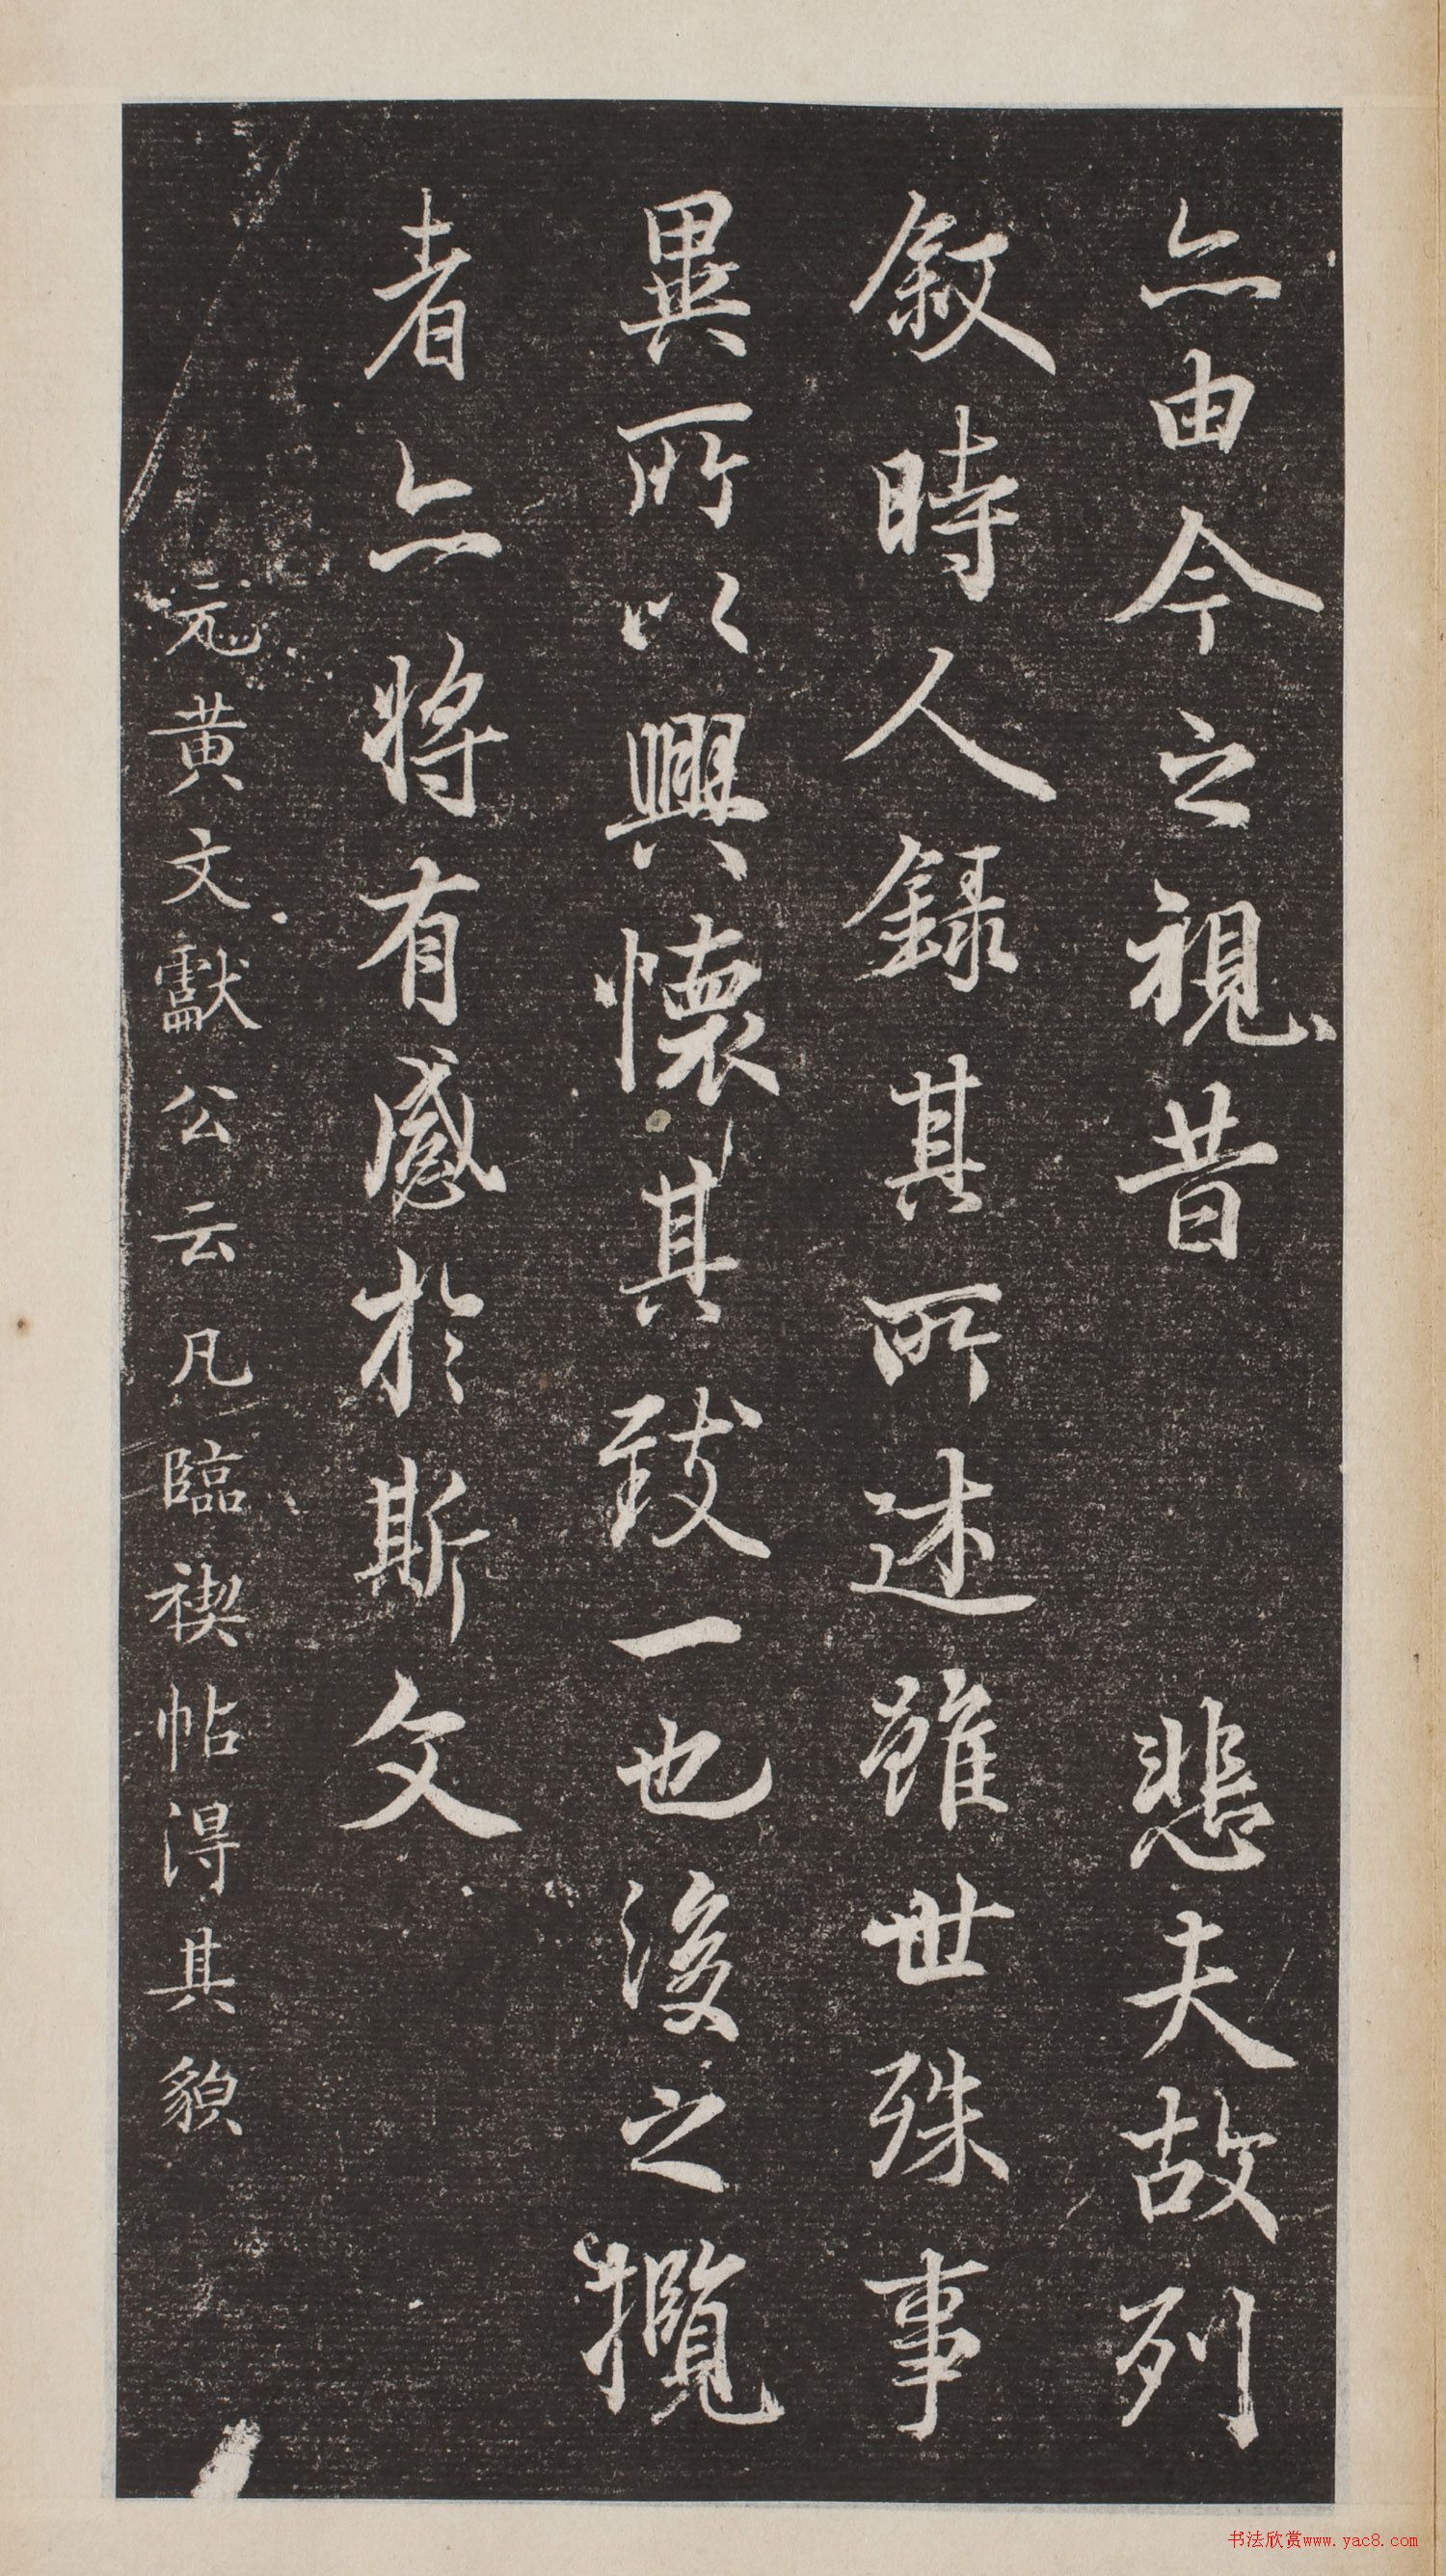 亦由今之視昔 悲夫故列
敘時人錄其所述雖世殊事
異所以興懷其致一也後之攬
者亦將有感於斯文
元黃文獻公云凡臨禊帖得其貌
书法欣赏www.yac8.com